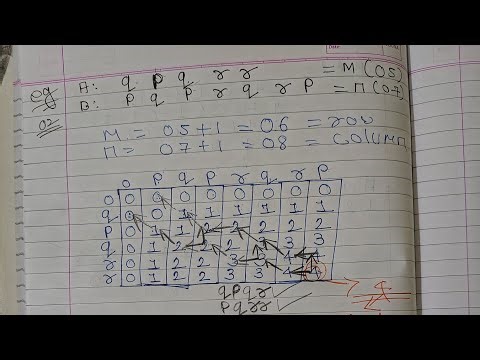 eg
02
A: q p q r r = M (05)
B: p q p r q r p = n (07)
M = 05+1 = 06 = row
n = 07+1 = 08 = column
0 p q p r q r p
0 0 0 0 0 0 0 0 0
q 0 0 1 1 1 1 1 1
p 0 1 1 2 2 2 2 2
q 0 1 2 2 2 3 3 3
r 0 1 2 2 3 3 4 4
r 0 1 2 2 3 3 4 4
qpqr ✓
pqrr ✓